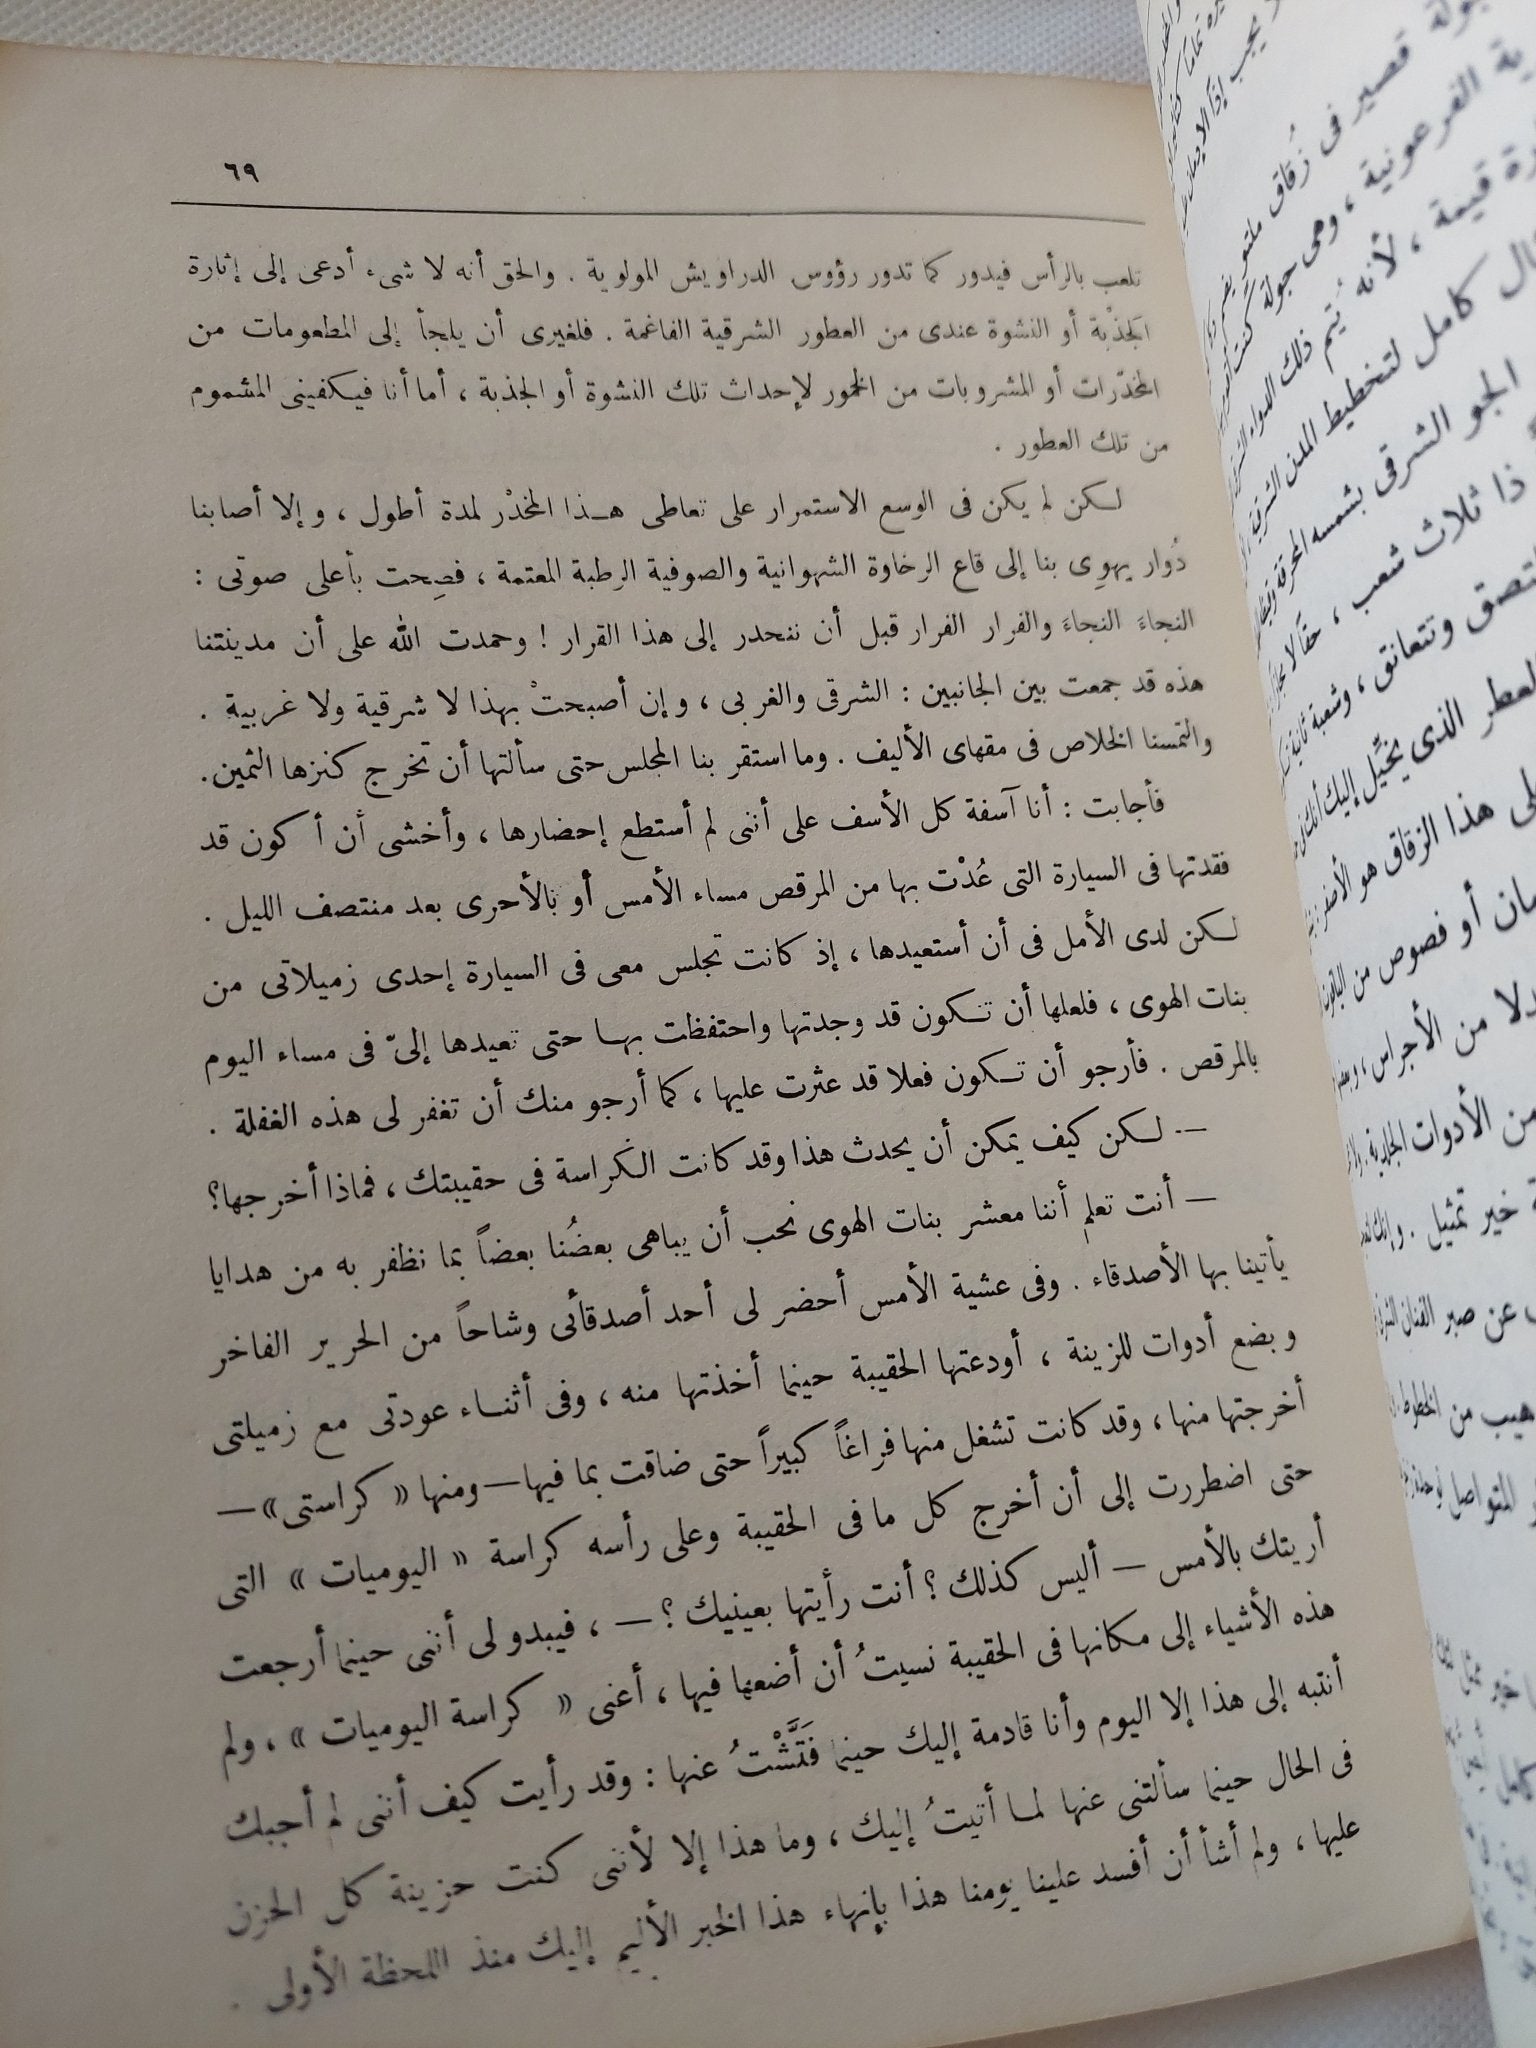 ٦٩
تلعب بالرأس فيدور كما تدور رؤوس الدراويش المولوية . والحق أنه لا شىء أدعى إلى إثارة
الجذبة أو النشوة عندى من العطور الشرقية الفاغمة . فلغيرى أن يلجأ إلى المطعومات من
المخدّرات أو المشروبات من الخمور لإحداث تلك النشوة أو الجذبة ، أما أنا فيكفينى المشموم
من تلك العطور .
لكن لم يكن فى الوسع الاستمرار على تعاطى هذا المخدّر لمدة أطول ، وإلا أصابنا
دُوار يهوِى بنا إلى قاع الرخاوة الشهوانية والصوفية الرطبة المعتمة ، فصِحت بأعلى صوتى :
النجاءَ النجاءَ والفرار الفرار قبل أن ننحدر إلى هذا القرار ! وحمدت الله على أن مدينتنا
هذه قد جمعت بين الجانبين : الشرقى والغربى ، وإن أصبحتْ بهذا لا شرقية ولا غربية .
والتمسنا الخلاص فى مقهاى الأليف . وما استقر بنا المجلس حتى سألتها أن تخرج كنزها الثمين.
فأجابت : أنا آسفة كل الأسف على أننى لم أستطع إحضارها ، وأخشى أن أكون قد
فقدتها فى السيارة التى عُدْت بها من المرقص مساء الأمس أو بالأحرى بعد منتصف الليل .
لكن لدى الأمل فى أن أستعيدها ، إذ كانت تجلس معى فى السيارة إحدى زميلاتى من
بنات الهوى ، فلعلها أن تكون قد وجدتها واحتفظت بها حتى تعيدها إلىّ فى مساء اليوم
بالمرقص . فأرجو أن تكون فعلا قد عثرت عليها ، كما أرجو منك أن تغفر لى هذه الغفلة .
— لكن كيف يمكن أن يحدث هذا وقد كانت الكراسة فى حقيبتك ، فماذا أخرجها؟
— أنت تعلم أننا معشر بنات الهوى نحب أن يباهى بعضُنا بعضاً بما نظفر به من هدايا
يأتينا بها الأصدقاء . وفى عشية الأمس أحضر لى أحد أصدقائى وشاحاً من الحرير الفاخر
وبضع أدوات للزينة ، أودعتها الحقيبة حينما أخذتها منه ، وفى أثناء عودتى مع زميلتى
أخرجتها منها ، وقد كانت تشغل منها فراغاً كبيراً حتى ضاقت بما فيها — ومنها « كراستى» —
حتى اضطررت إلى أن أخرج كل ما فى الحقيبة وعلى رأسه كراسة « اليوميات » التى
أريتك بالأمس — أليس كذلك ؟ أنت رأيتها بعينيك ؟ — ، فيبدو لى أننى حينما أرجعت
هذه الأشياء إلى مكانها فى الحقيبة نسيتُ أن أضعها فيها ، أعنى « كراسة اليوميات » ، ولم
أنتبه إلى هذا إلا اليوم وأنا قادمة إليك حينما فَتَّشْتُ عنها : وقد رأيت كيف أننى لم أجبك
فى الحال حينما سألتنى عنها لما أتيتُ إليك ، وما هذا إلا لأننى كنت حزينة كل الحزن
عليها ، ولم أشأ أن أفسد علينا يومنا هذا بإنهاء هذا الخبر الأليم إليك منذ اللحظة الأولى .
قصير فى زُقاق ملتو
الفرعونية ، وهى جولة كنت
قيمة ، لأنه يُتم ذلك الدواء
كامل لتخطيط المدن الشرقية
الجو الشرقى بشمسه المحرقة
ذا ثلاث شعب ، حقاً لا
وتتعانق ، وشعبة ثانية
العطر الذى يخيَّل إليك أنك
هذا الزقاق هو الأصفر
أو فصوص من الياقوت
من الأجراس ،
من الأدوات الجلدية .
خير تمثيل .
عن صبر الفنان
من الخطوط